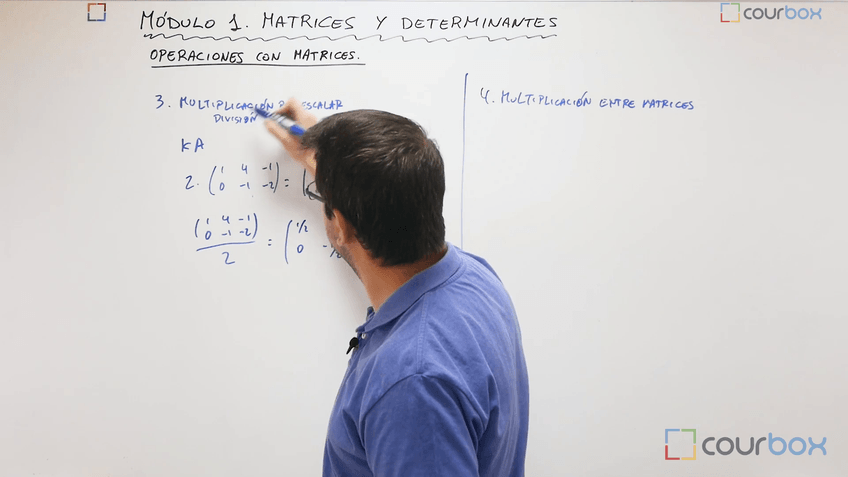 MÓDULO 1. MATRICES Y DETERMINANTES
courbox
OPERACIONES CON MATRICES.
3. MULTIPLICACIÓN ESCALAR
DIVISIÓN
KA
2. (1 4 -1
0 -1 -2) = (
(1 4 -1
0 -1 -2)
2
= (1/2
0
4. MULTIPLICACIÓN ENTRE MATRICES
courbox